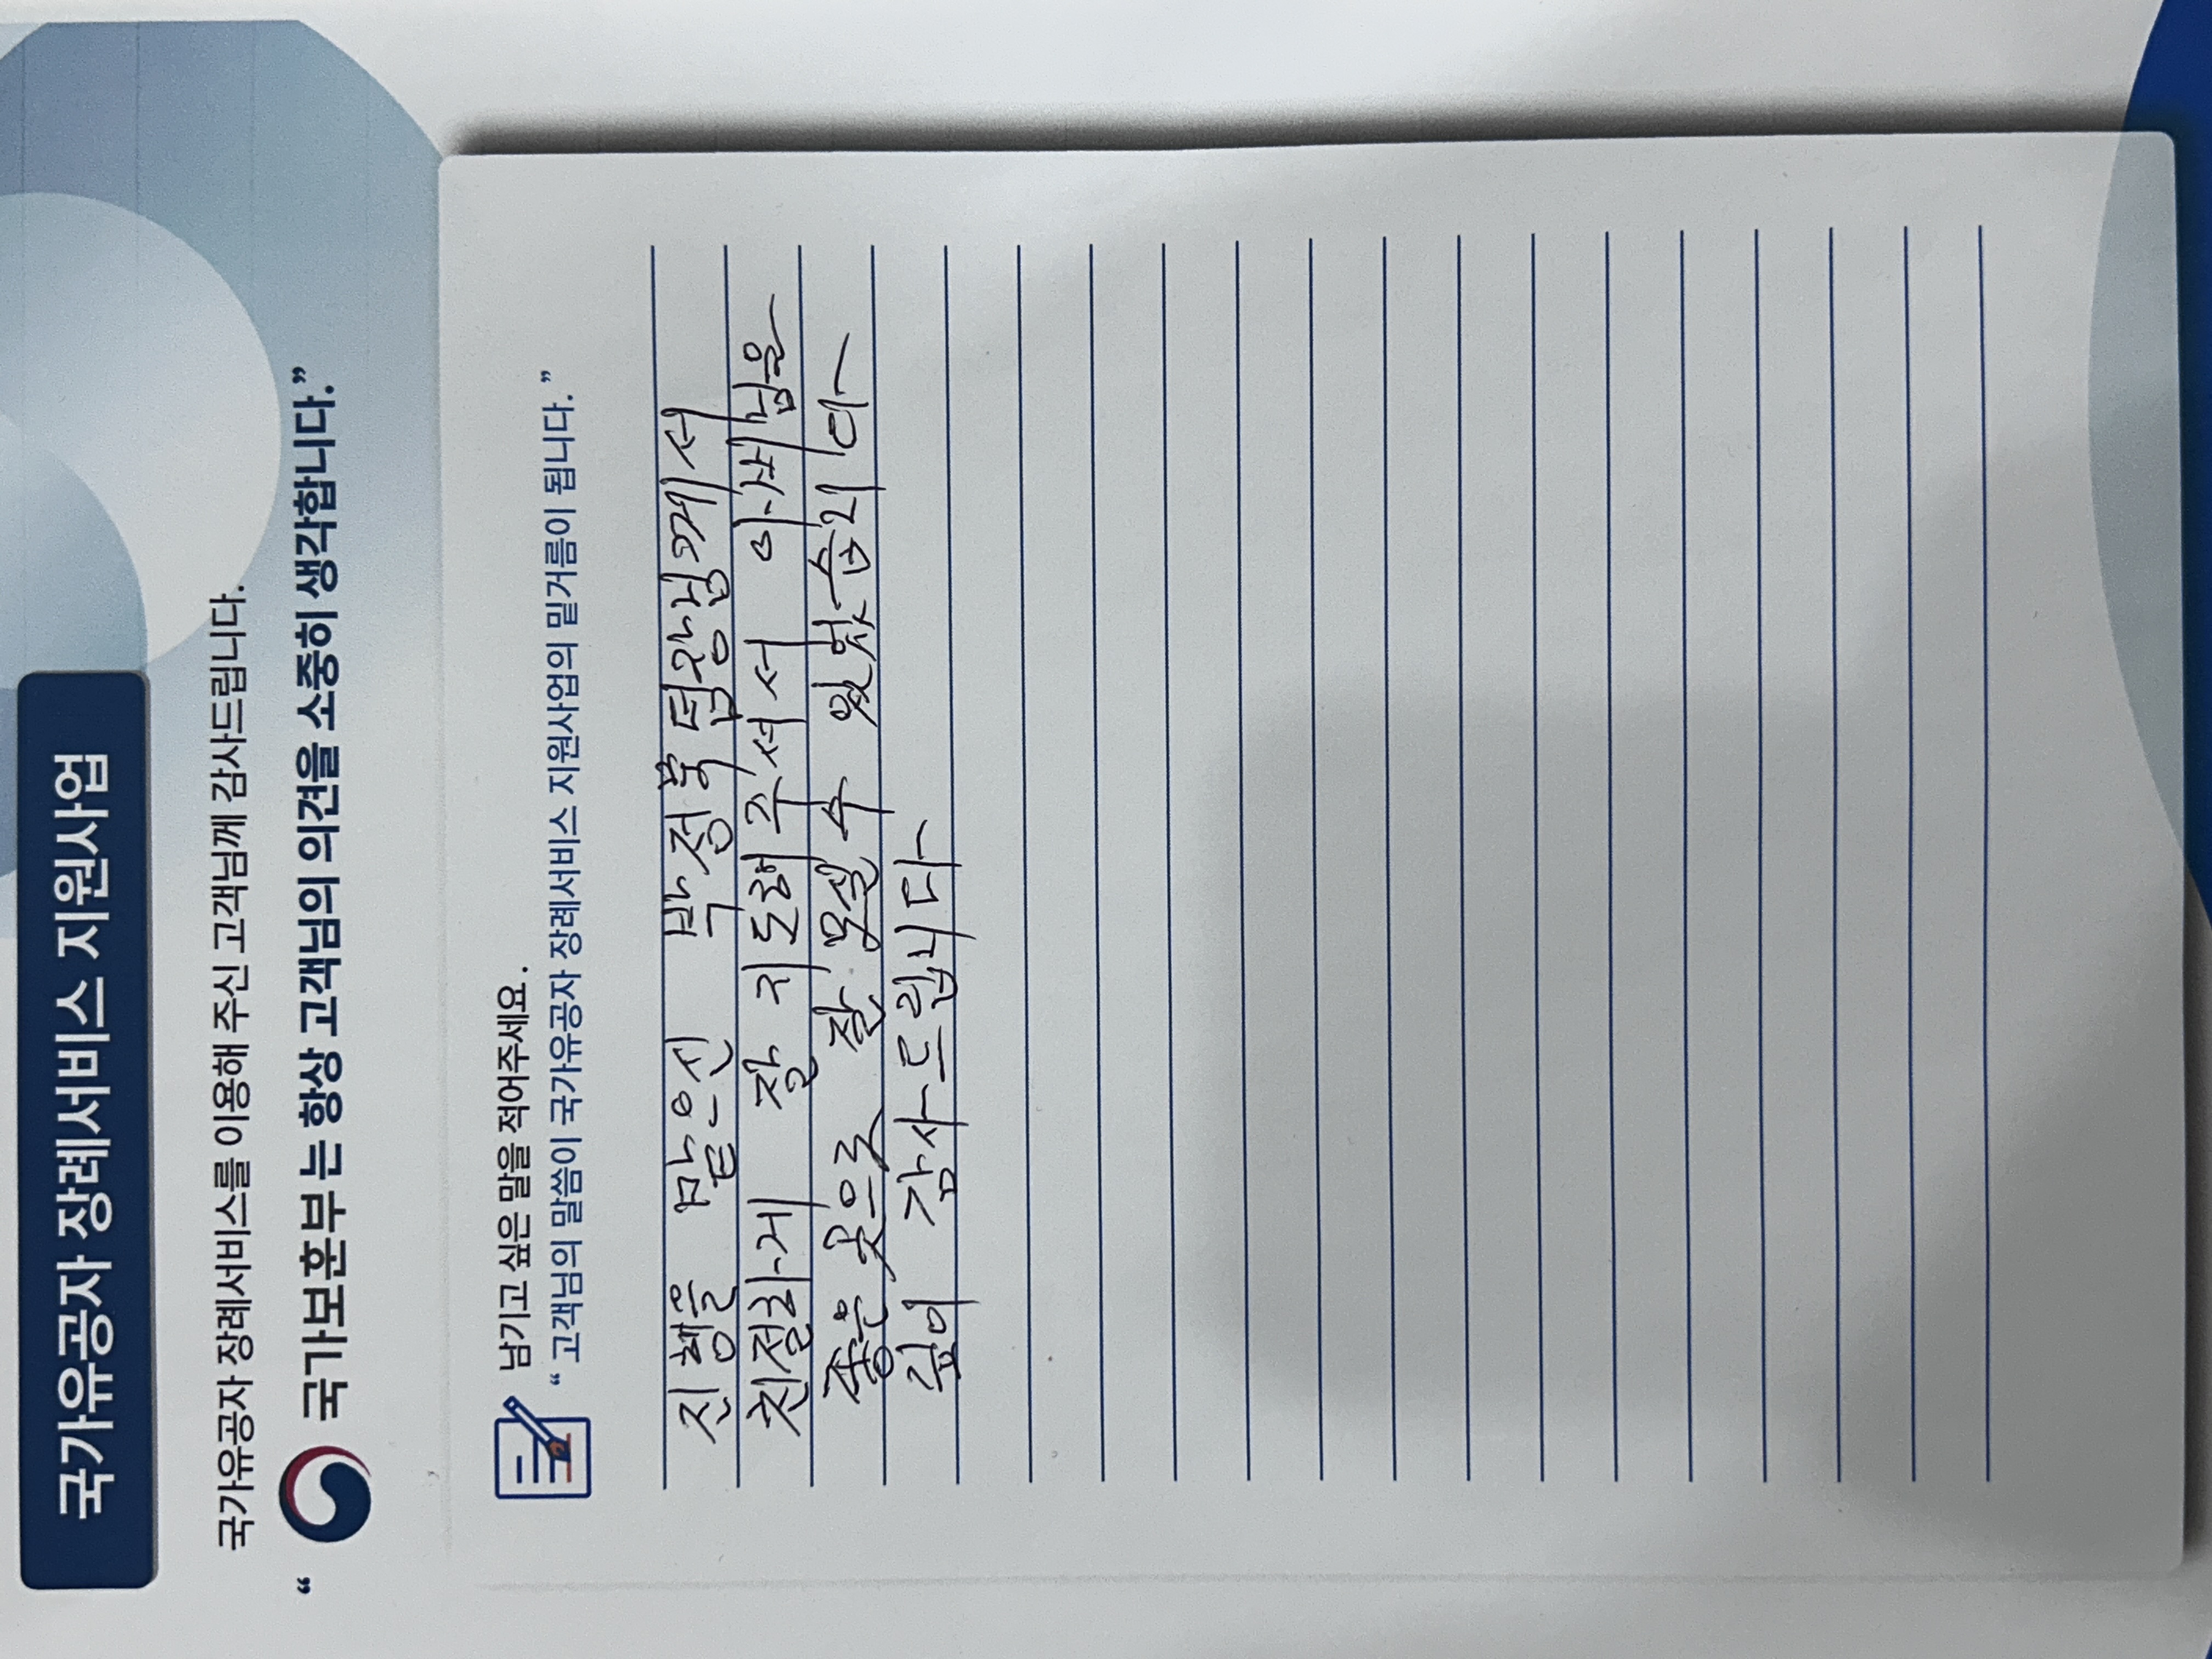 국가유공자 장례서비스 지원사업
국가유공자 장례서비스를 이용해 주신 고객님께 감사드립니다.
“ 국가보훈부 는 항상 고객님의 의견을 소중히 생각합니다.”
남기고 싶은 말을 적어주세요.
“ 고객님의 말씀이 국가유공자 장례서비스 지원사업의 밑거름이 됩니다. ”
진행을 맡으신 박정묵 팀장님께서
친절하게 잘 지도해주셔서 아버님을
좋은 곳으로 잘 모실수 있었습니다
깊이 감사드립니다